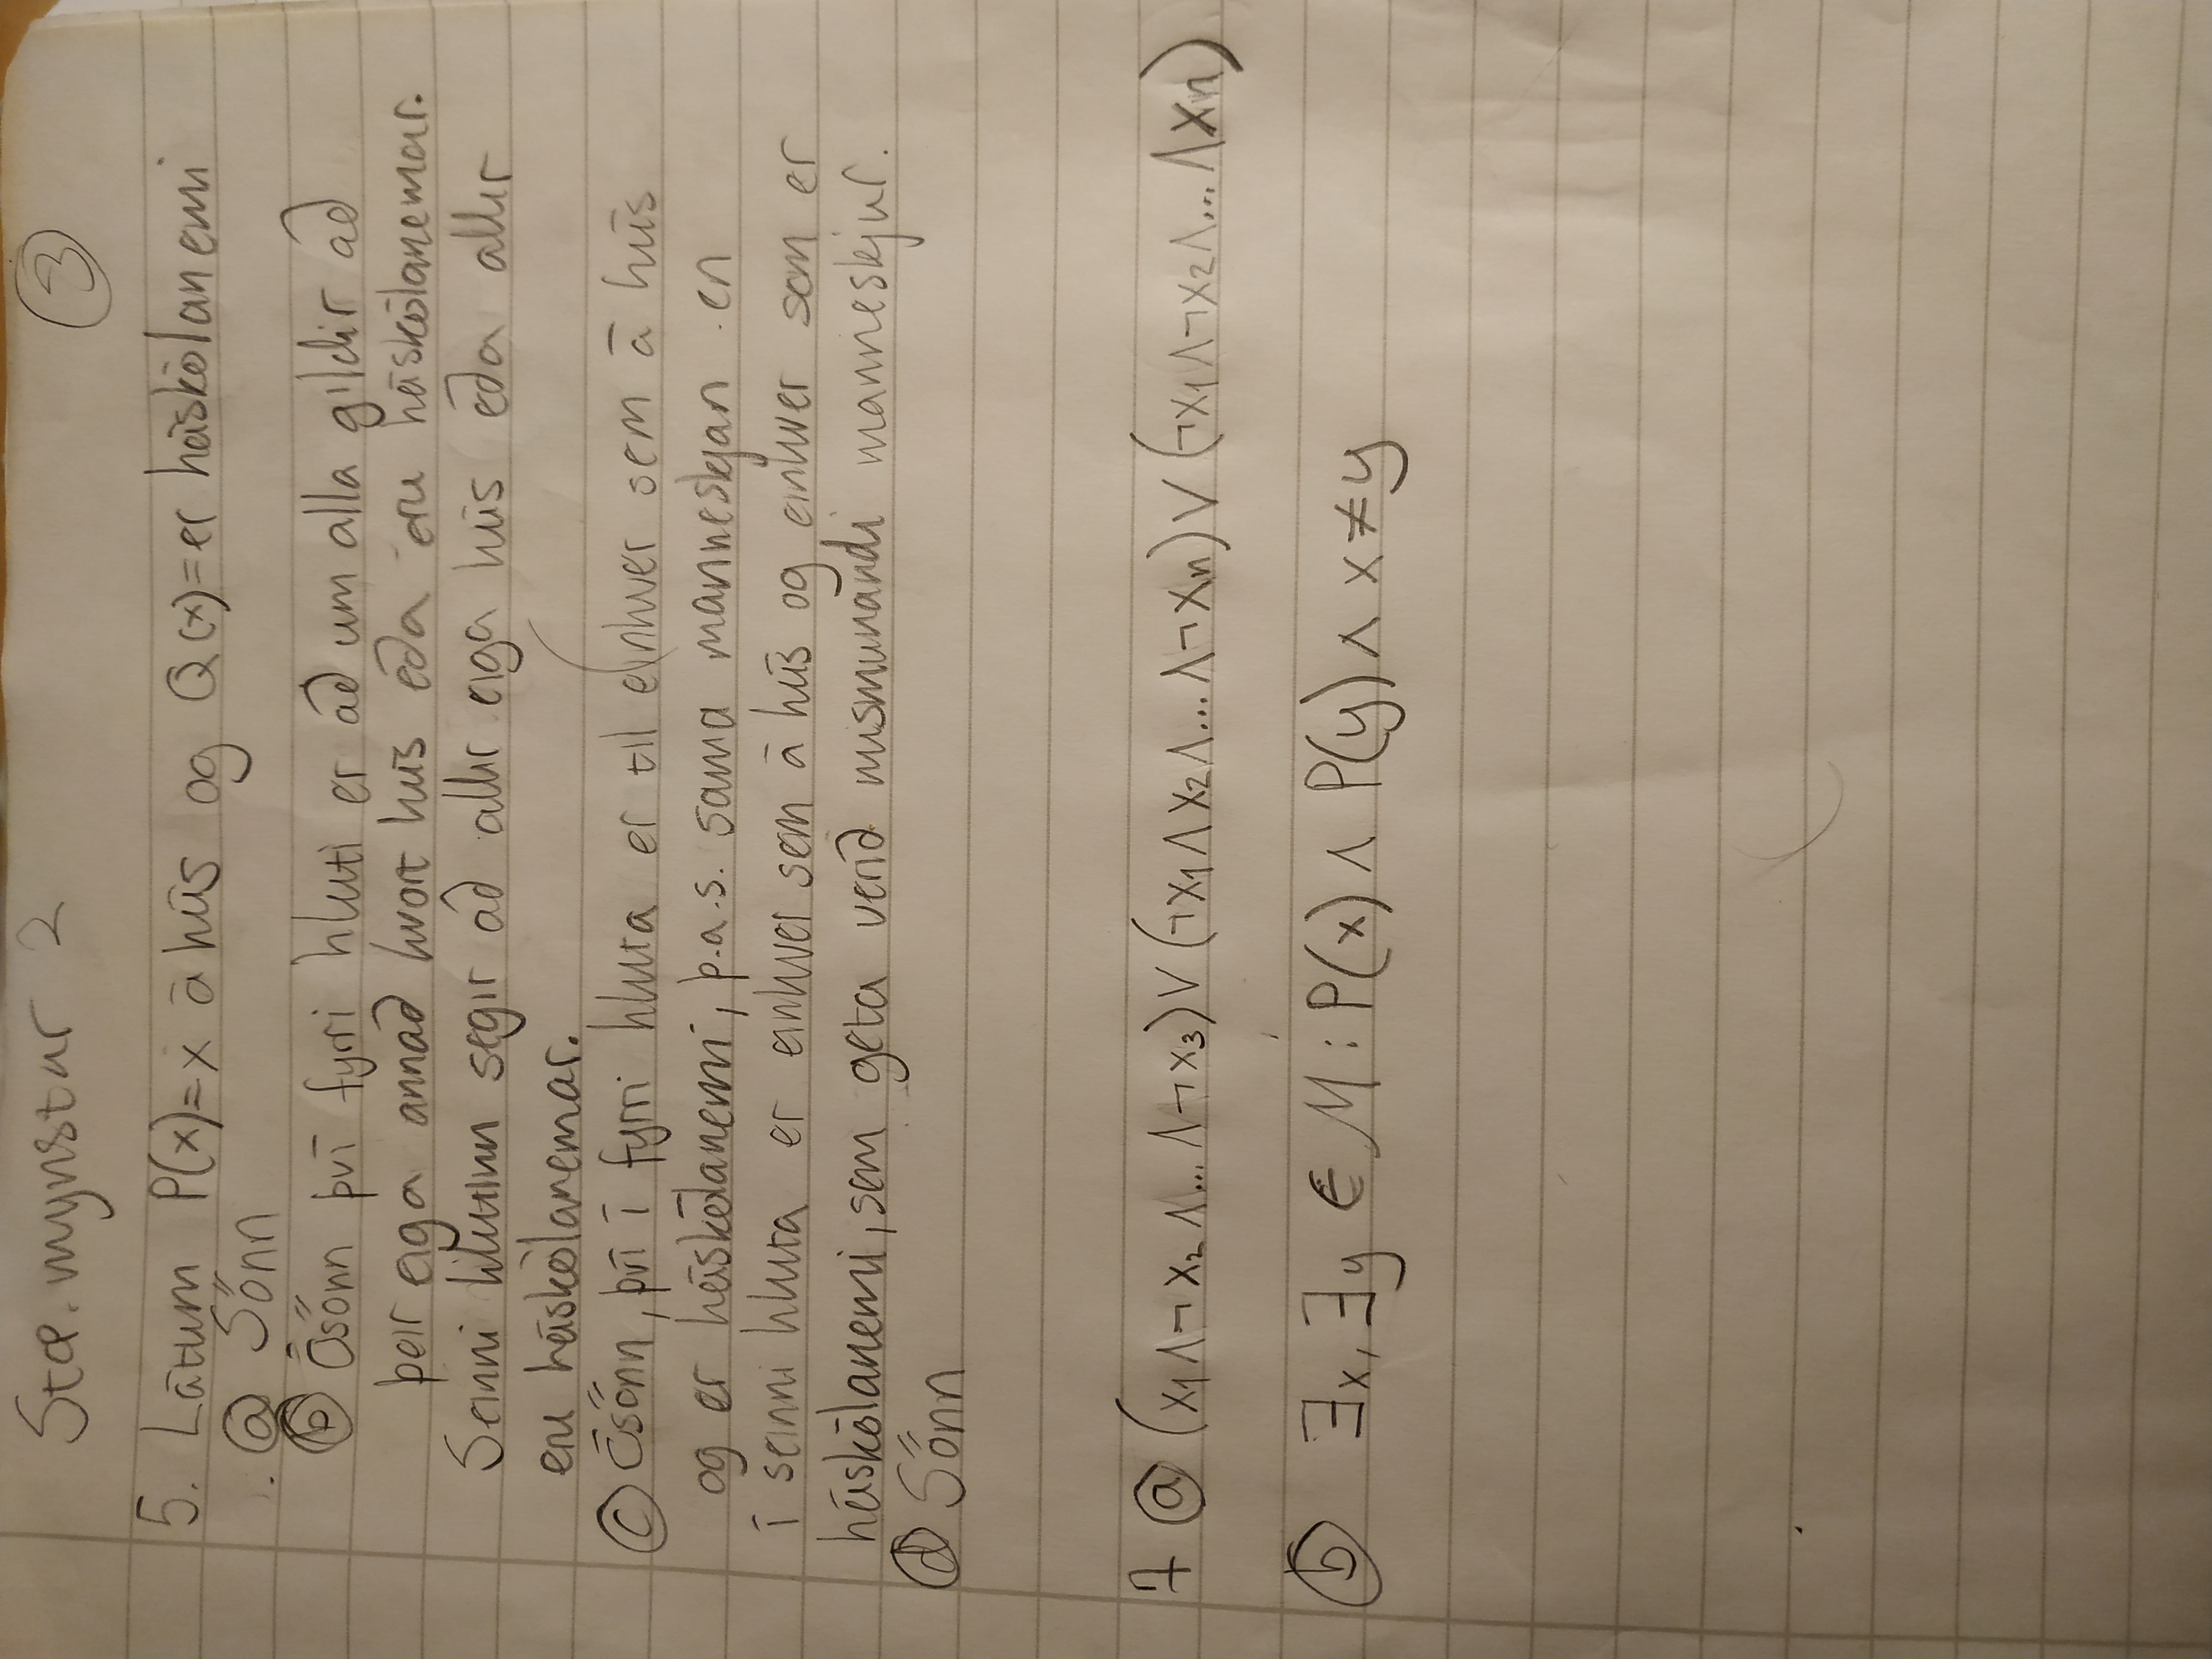 Stæ. mynstur 2 3
5. Látum P(x)=x á hús og Q(x)=er háskólanemi
a Sönn
b Ósönn því fyrri hluti er að um alla gildir að
þeir eiga annað hvort hús eða eru háskólanemar.
Seinni hlutinn segir að allir eiga hús eða allir
eru háskólanemar.
c Ósönn, því í fyrri hluta er til einhver sem á hús
og er háskólanemi, þ.a.s. sama manneskjan en
í seinni hluta er einhver sem á hús og einhver sem er
háskólanemi, sem geta verið mismunandi manneskjur.
d Sönn
7 a (x₁∧¬x₂∧...∧¬x₃)∨(¬x₁∧x₂∧...∧¬xn)∨(¬x₁∧¬x₂∧...∧xn)
b ∃x, ∃y ∈ M : P(x) ∧ P(y) ∧ x≠y